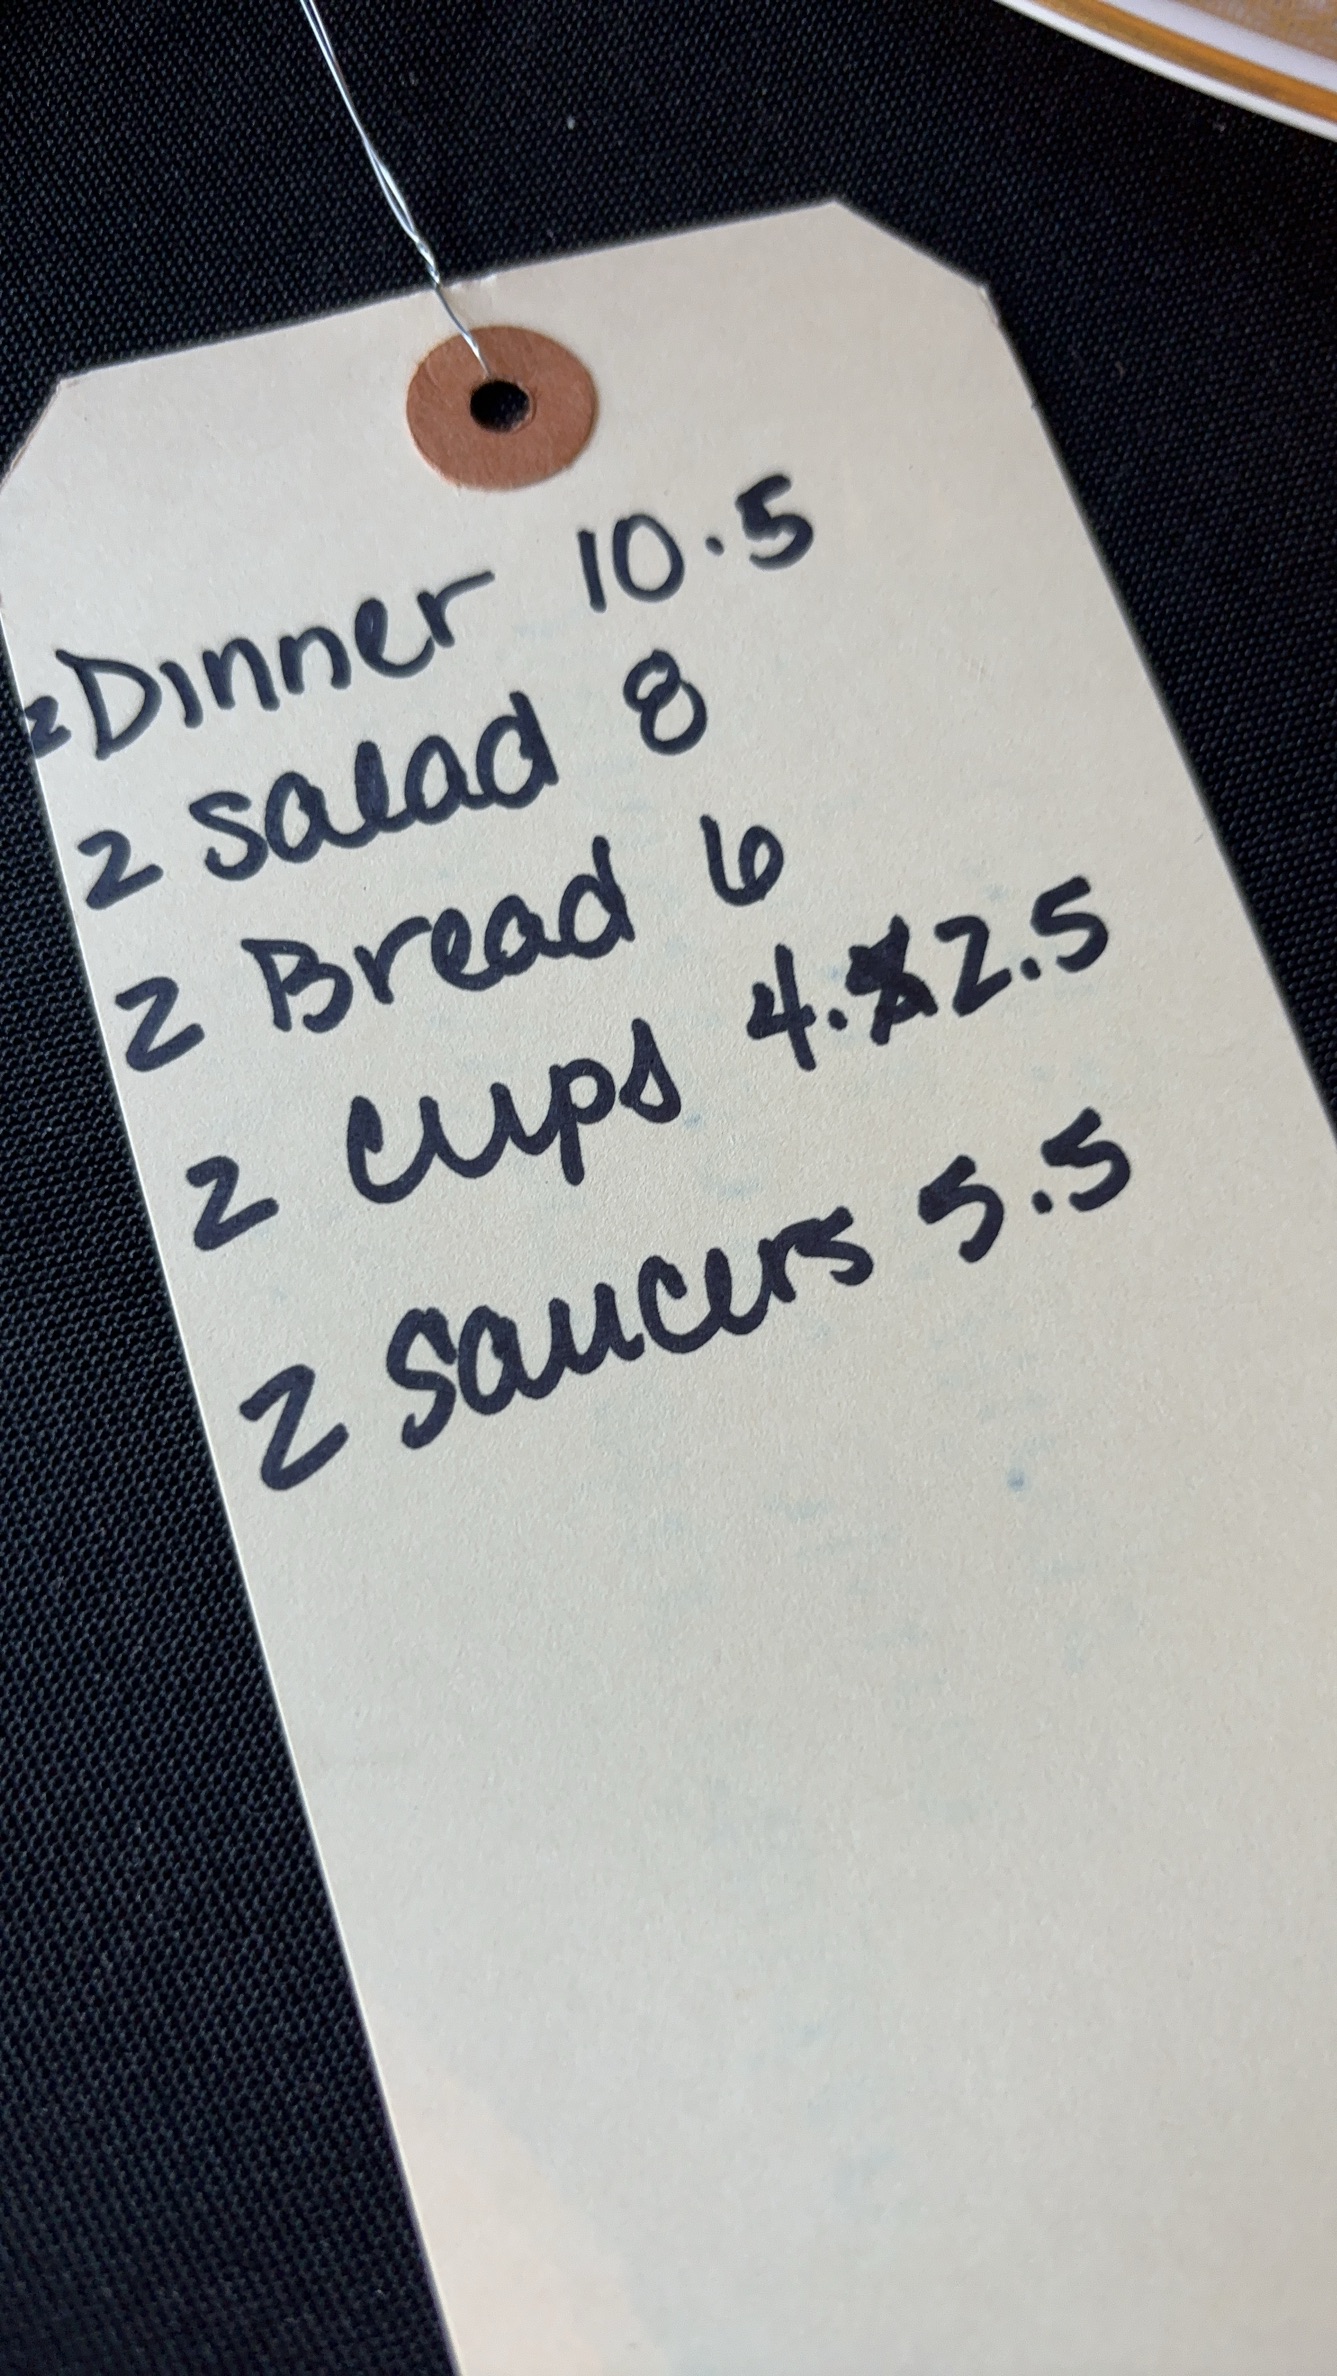 2 Dinner 10.5
2 Salad 8
2 Bread 6
2 cups 4. 2.5
2 Saucers 5.5